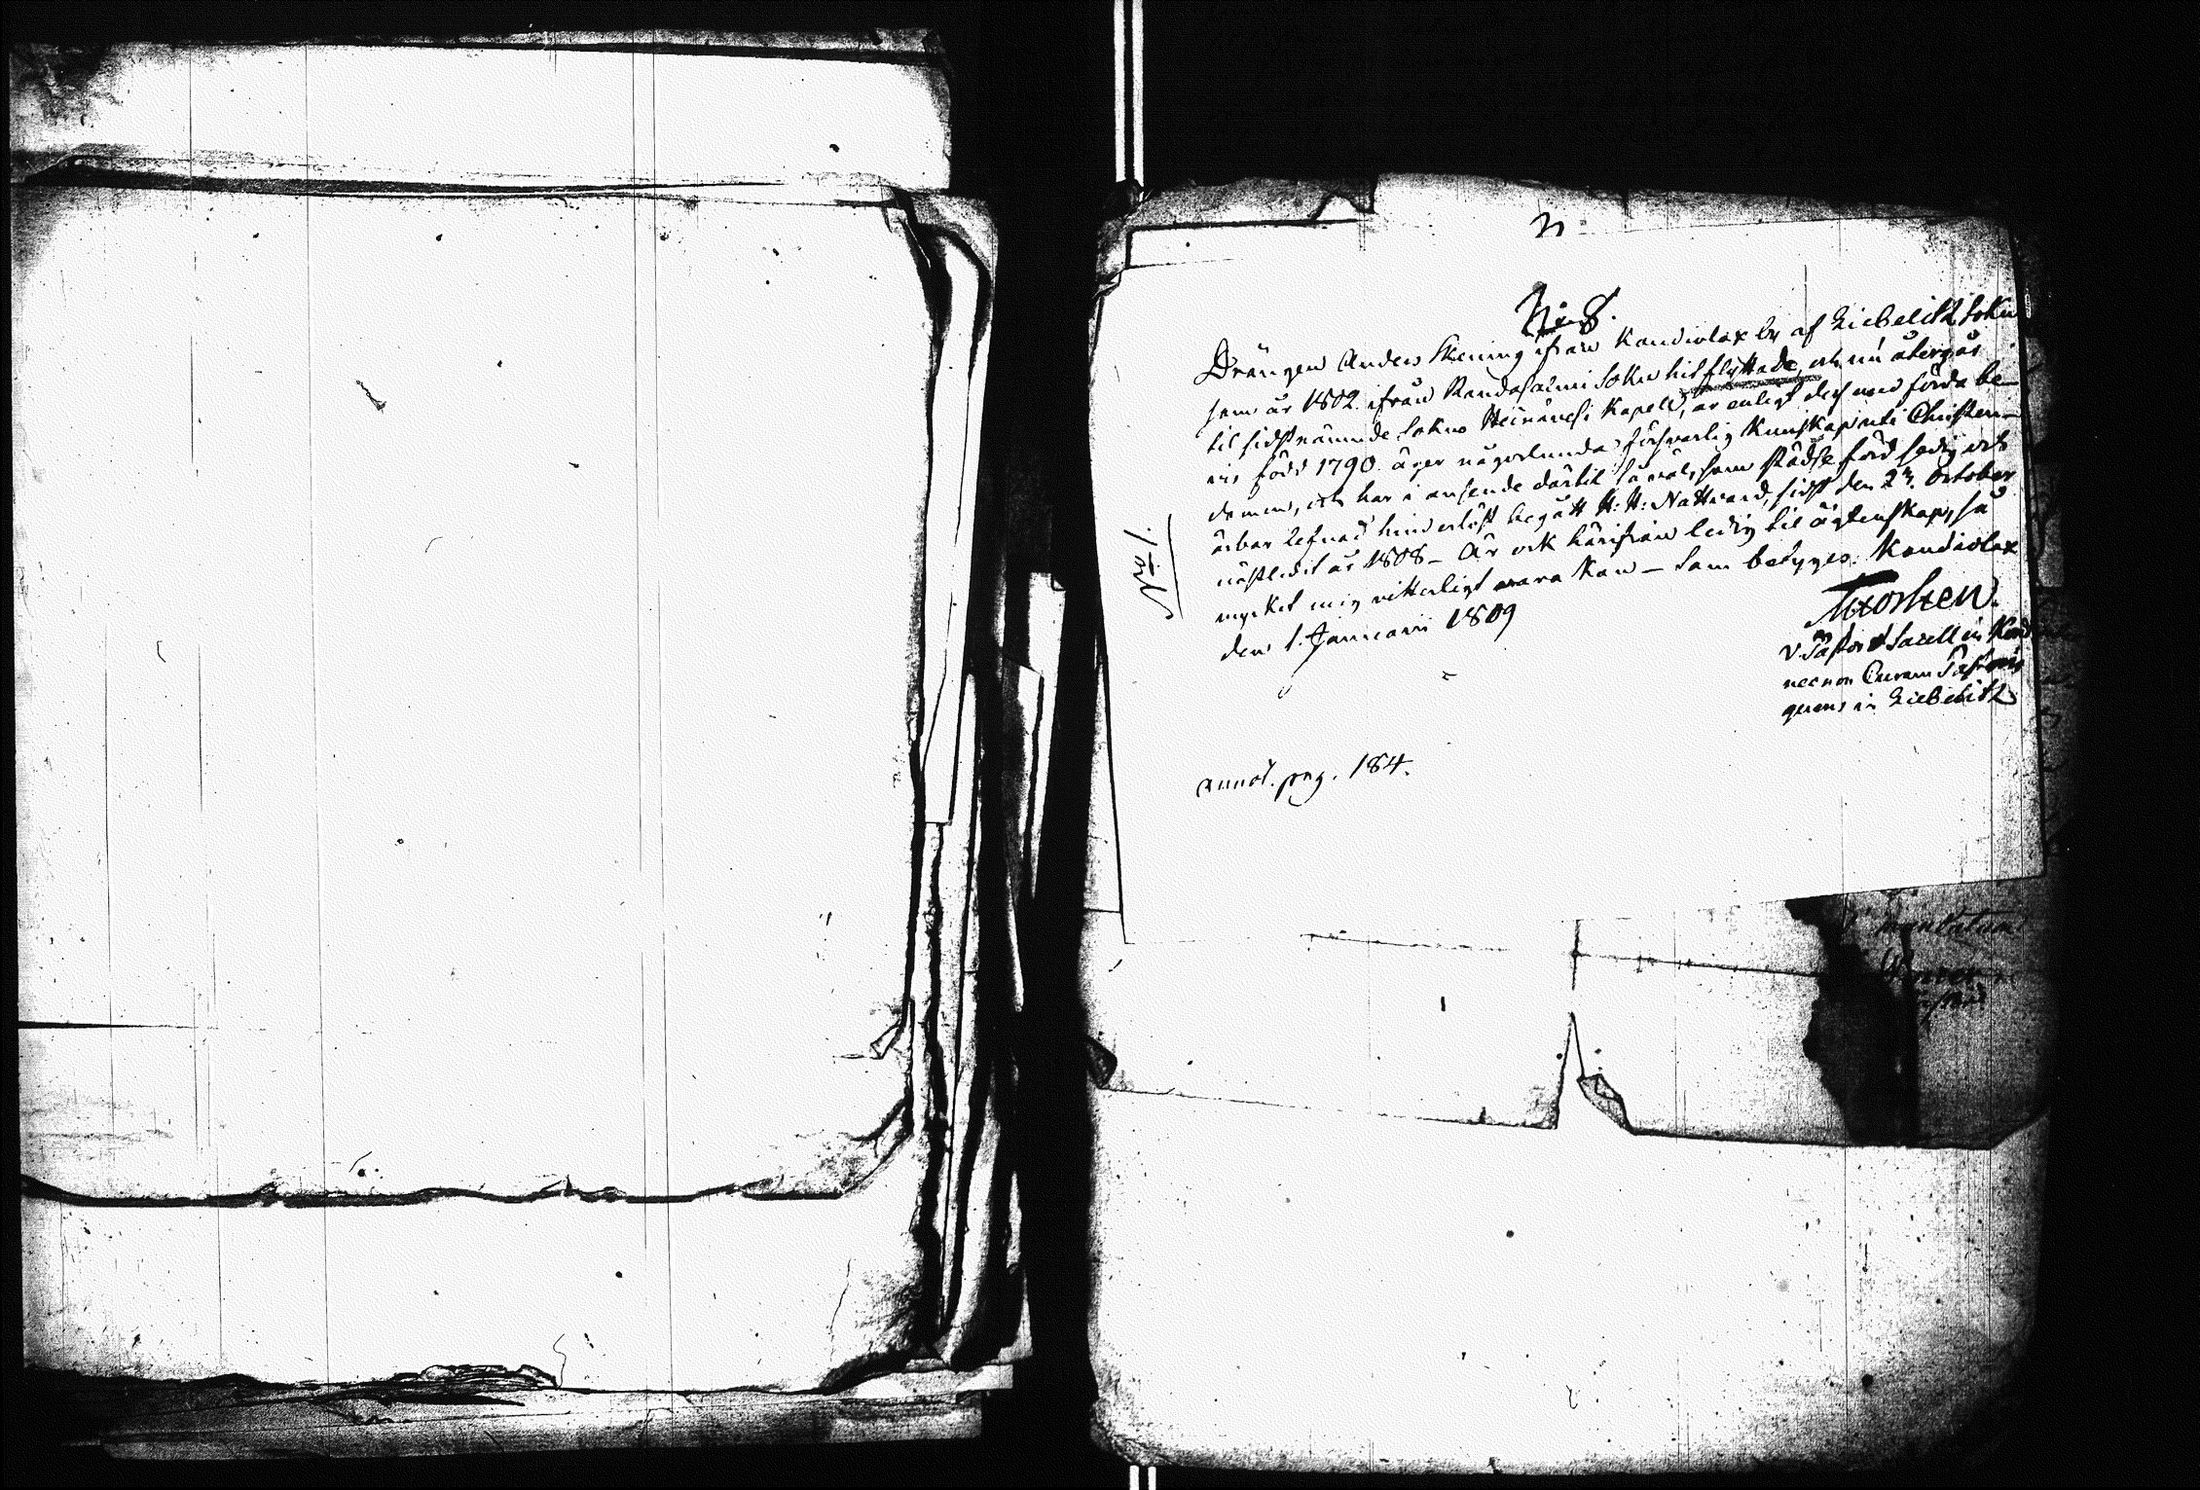 N:o 8.
Drängen Anders Skening ifrån Kandiolax by af Liebelitz Sokn
som år 1802 ifrån Randasalmi Sokn hitflyttade, och nu återgår
til sidstnämnde Sokns Heinävesi Kapell, är enligt des med förda be-
vis född 1790. äger någorlunda försvarlig Kunskap uti Christen-
domen, och har i anseende därtil så väl, som städse förd sedig och
ärbar Lefnad hinderlöst begått H: H: Nattvard, sidst den 23. October
nästledit år 1808 - Är ock härifrån ledig til ägtenskap, så
mycket mig vitterligt vara kan - Som betyges. Kandiolax
den 1. Januarii 1809
V. Pastor & Sacell in
necnon Curam Pastoris
gerens in Liebelitz
annot. pag. 184.